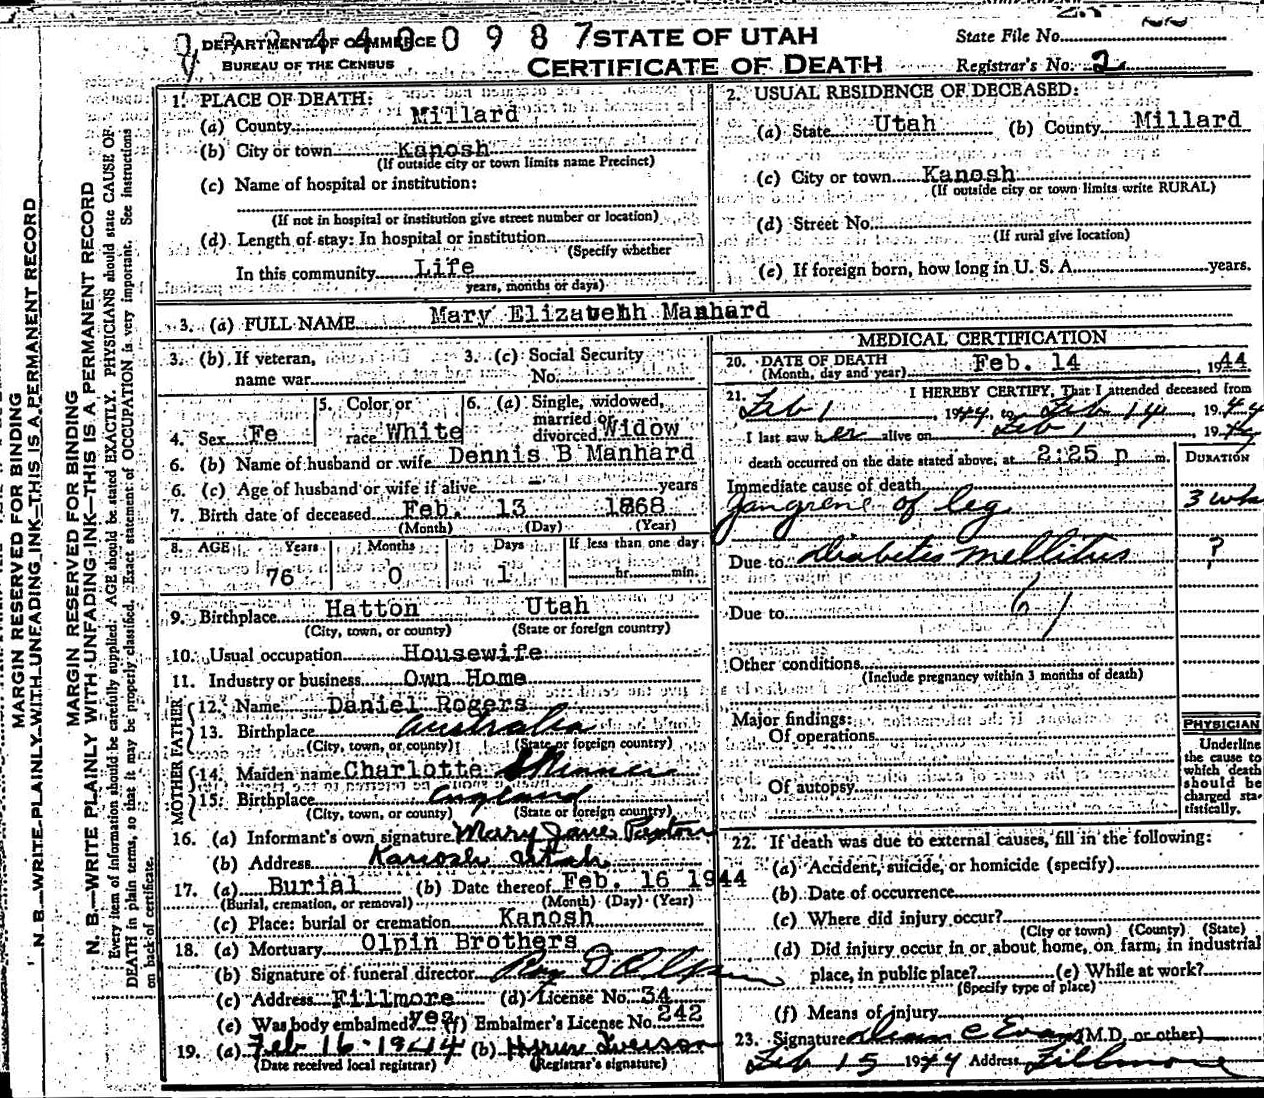 DEPARTMENT OF COMMERCE
BUREAU OF THE CENSUS
0 9 8 7
STATE OF UTAH
CERTIFICATE OF DEATH
State File No.
Registrar's No. 2
MARGIN RESERVED FOR BINDING
N. B.—WRITE PLAINLY WITH UNFADING INK—THIS IS A PERMANENT RECORD
MARGIN RESERVED FOR BINDING
N. B.—WRITE PLAINLY WITH UNFADING INK—THIS IS A PERMANENT RECORD
Every item of information should be carefully supplied. AGE should be stated EXACTLY. PHYSICIANS should state CAUSE OF
DEATH in plain terms, so that it may be properly classified. Exact statement of OCCUPATION is very important. See instructions
on back of certificate.
1. PLACE OF DEATH:
(a) County Millard
(b) City or town Kanosh
(If outside city or town limits name Precinct)
(c) Name of hospital or institution:
(If not in hospital or institution give street number or location)
(d) Length of stay: In hospital or institution
(Specify whether
In this community Life
years, months or days)
2. USUAL RESIDENCE OF DECEASED:
(a) State Utah (b) County Millard
(c) City or town Kanosh
(If outside city or town limits write RURAL)
(d) Street No.
(If rural give location)
(e) If foreign born, how long in U. S. A. years.
3. (a) FULL NAME Mary Elizabeth Manhard
3. (b) If veteran,
name war
3. (c) Social Security
No.
4. Sex Fe
5. Color or
race White
6. (a) Single, widowed,
married or
divorced Widow
6. (b) Name of husband or wife Dennis B Manhard
6. (c) Age of husband or wife if alive - years
7. Birth date of deceased Feb. 13 1868
(Month) (Day) (Year)
8. AGE Years Months Days If less than one day
76 0 1 hr. min.
9. Birthplace Hatton Utah
(City, town, or county) (State or foreign country)
10. Usual occupation Housewife
11. Industry or business Own Home
FATHER
12. Name Daniel Rogers
13. Birthplace Australia
(City, town, or county) (State or foreign country)
MOTHER
14. Maiden name Charlotte
15. Birthplace England
(City, town, or county) (State or foreign country)
16. (a) Informant's own signature Mary Jane Paxton
(b) Address Kanosh Utah
17. (a) Burial (b) Date thereof Feb. 16 1944
(Burial, cremation, or removal) (Month) (Day) (Year)
(c) Place: burial or cremation Kanosh
18. (a) Mortuary Olpin Brothers
(b) Signature of funeral director
(c) Address Fillmore (d) License No. 34
(e) Was body embalmed? yes (f) Embalmer's License No. 242
19. (a) Feb 16-1944 (b) Hyrum Iverson
(Date received local registrar) (Registrar's signature)
MEDICAL CERTIFICATION
20. DATE OF DEATH Feb. 14, 1944
(Month, day and year)
21. I HEREBY CERTIFY, That I attended deceased from
Feb 1, 1944, to Feb 14, 1944
I last saw her alive on Feb 1, 1944
death occurred on the date stated above, at 2:25 p m.
DURATION
Immediate cause of death
Gangrene of leg 3 wks
Due to Diabetes mellitus ?
Due to
Other conditions
(Include pregnancy within 3 months of death)
Major findings:
Of operations
Of autopsy
PHYSICIAN
Underline
the cause to
which death
should be
charged sta-
tistically.
22. If death was due to external causes, fill in the following:
(a) Accident, suicide, or homicide (specify)
(b) Date of occurrence
(c) Where did injury occur?
(City or town) (County) (State)
(d) Did injury occur in or about home, on farm, in industrial
place, in public place? (e) While at work?
(Specify type of place)
(f) Means of injury
23. Signature Dean C Evans (M.D. or other)
Feb 15 1944 Address Fillmore